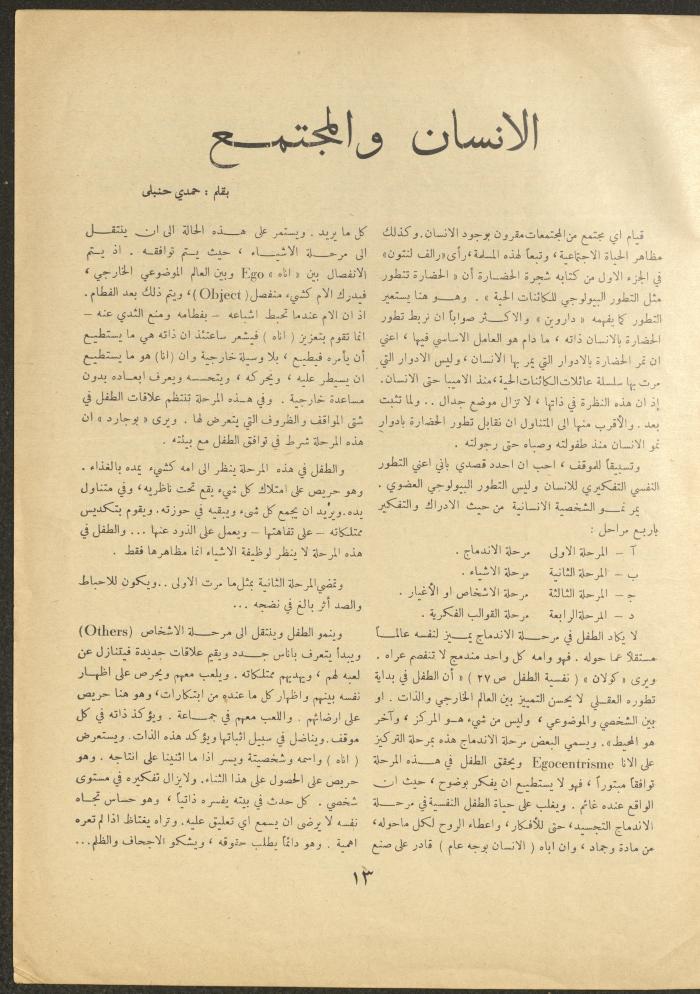 الانسان والمجتمـــع
بقلم : حمدي حنبلي
قيام اي مجتمع من المجتمعات مقرون بوجود الانسان. وكذلك
مظاهر الحياة الاجتماعية ، وتبعاً لهذه المسلمة ،رأى «رالف لنتون»
في الجزء الاول من كتابه شجرة الحضارة أن « الحضارة تتطور
مثل التطور البيولوجي للكائنات الحية » . وهــو هنا يستعير
التطور كما يفهمه « داروين » والاكــثر صواباً ان نربط تطور
الحضارة بالانسان ذاته ، ما دام هو العامل الاساسي فيها ، اعني
ان تمر الحضارة بالادوار التي يمر بها الانسان ، وليس الادوار التي
مرت بها سلسلة عائلات الكائنات الحية ،منذ الاميبا حتى الانسان.
إذ ان هذه النظرة في ذاتها ، لا تزال موضع جدال .. ولما تثبت
بعد . والأقرب منها الى المتناول ان نقابل تطور الحضارة بادوار
نمو الانسان منذ طفولته وصباه حتى رجولته .
وتسبيقاً للموقف ، احب ان احدد قصدي باني اعني التطور
النفسي التفكيري للانسان وليس التطور البيولوجي العضوي .
يمر نمــو الشخصية الانسانية من حيث الادراك والتفكير
باربع مراحل :
آ – المرحلة الاولى مرحلة الاندماج .
ب – المرحلة الثانية مرحلة الاشياء .
ج – المرحلة الثالثة مرحلة الاشخاص او الأغيار .
د – المرحلة الرابعة مرحلة القوالب الفكرية .
لا يكاد الطفل في مرحـــلة الاندماج يمـيز لنفسه عالمــاً
مستقلاً عما حوله . فهو وامه كل واحد مندمج لا تنفصم عراه .
ويرى « كولان » ( نفسية الطفل ص ٢٧ ) « أن الطفل في بداية
تطوره العقــلي لا يحسن التمييز بين العالم الخارجي والذات . او
بين الشخصي والموضوعي ، وليس من شيء هــو المركز ، وآخر
هو المحيط». ويسمي البعض مرحلة الاندماج هذه بمرحلة التركيز
على الانا Egocentrisme ويحقق الطفل في هـــذه المرحلة
توافقاً مبتوراً ، فهو لا يستطيـع ان يفكر بوضوح ، حيث ان
الواقع عنده غائم . ويغلب على حياة الطفل النفسية في مرحــلة
الاندماج التجسيد، حتى للأفكار، واعطاء الروح لكل ماحوله،
من مادة وجماد ، وان اباه ( الانسان بوجه عام ) قادر على صنع
كل ما يريد . ويستمر على هــذه الحالة الى ان ينتقــل
الى مرحــلة الاشيــاء ، حيث يــتم توافقــه . اذ يــتم
الانفصال بين « اناه » Ego وبين العالم الموضوعي الخارجي ،
فيدرك الام كشيء منفصل( Object )، ويتم ذلك بعد الفطام.
اذ ان الام عندما تحبط اشباعه – بفطامه ومنع الثدي عنه –
انما تقوم بتعزيز ( اناه ) فيشعر ساعتئذ ان ذاته هي ما يستطيـع
أن يأمره فيطيع ، بلا وسيلة خارجية وان (انا) هو ما يستطيع
ان يسيطر عليه ، ويحركه ، ويتحسسه ويعرف ابعــاده بدون
مساعدة خارجية . وفي هــذه المرحلة تنتظم علاقات الطفل في
شتى المواقف والظروف التي يتعرض لها . ويرى « بوجارد » ان
هذه المرحلة شرط في توافق الطفل مع بيئته .
والطفل في هذه المرحلة ينظر الى امه كشيء يمده بالغذاء .
وهو حريص على امتلاك كل شيء يقع تحت ناظريه، وفي متناول
يده. ويريد ان يجمع كل شيء ويبقيه في حوزته. ويقوم بتكديس
ممتلكاته – على تفاهتها – ويعمل على الذود عنها ... والطفل في
هذه المرحلة لا ينظر لوظيفة الاشياء انما مظاهرها فقط .
وتمضي المرحلة الثانية بمثل ما مرت الاولى ..ويكون للاحباط
والصد أثر بالغ في نضجه ...
وينمو الطفل وينتقل الى مرحــلة الاشخاص (Others)
ويبدأ يتعرف باناس جــدد ويقيم علاقات جديدة فيتنازل عن
لعبه لهم ، ويهديهم ممتلكاته . ويلعب معهم ويحرص على اظهــار
نفسه بينهم واظهار كل ما عنده من ابتكارات، وهو هنا حريص
على ارضائهم . واللعب معهم في جمـــاعة . ويؤكد ذاته في كل
موقف. ويناضل في سبيل اثباتها ويؤكد هذه الذات . ويستعرض
( اناه ) واسمه وشخصيتة ويسر اذا ما اثنينا على انتاجه . وهو
حريص على الحصول على هذا الثناء. ولايزال تفكيره في مستوى
شخصي . كل حدث في بيته يفسره ذاتياً ، وهو حساس تجــاه
نفسه لا يرضى ان يسمع اي تعليق عليه. وتراه يغتاظ اذا لم تعره
اهمية . وهو دائماً يطلب حقوقه ، ويشكو الاجحاف والظلم...
١٣